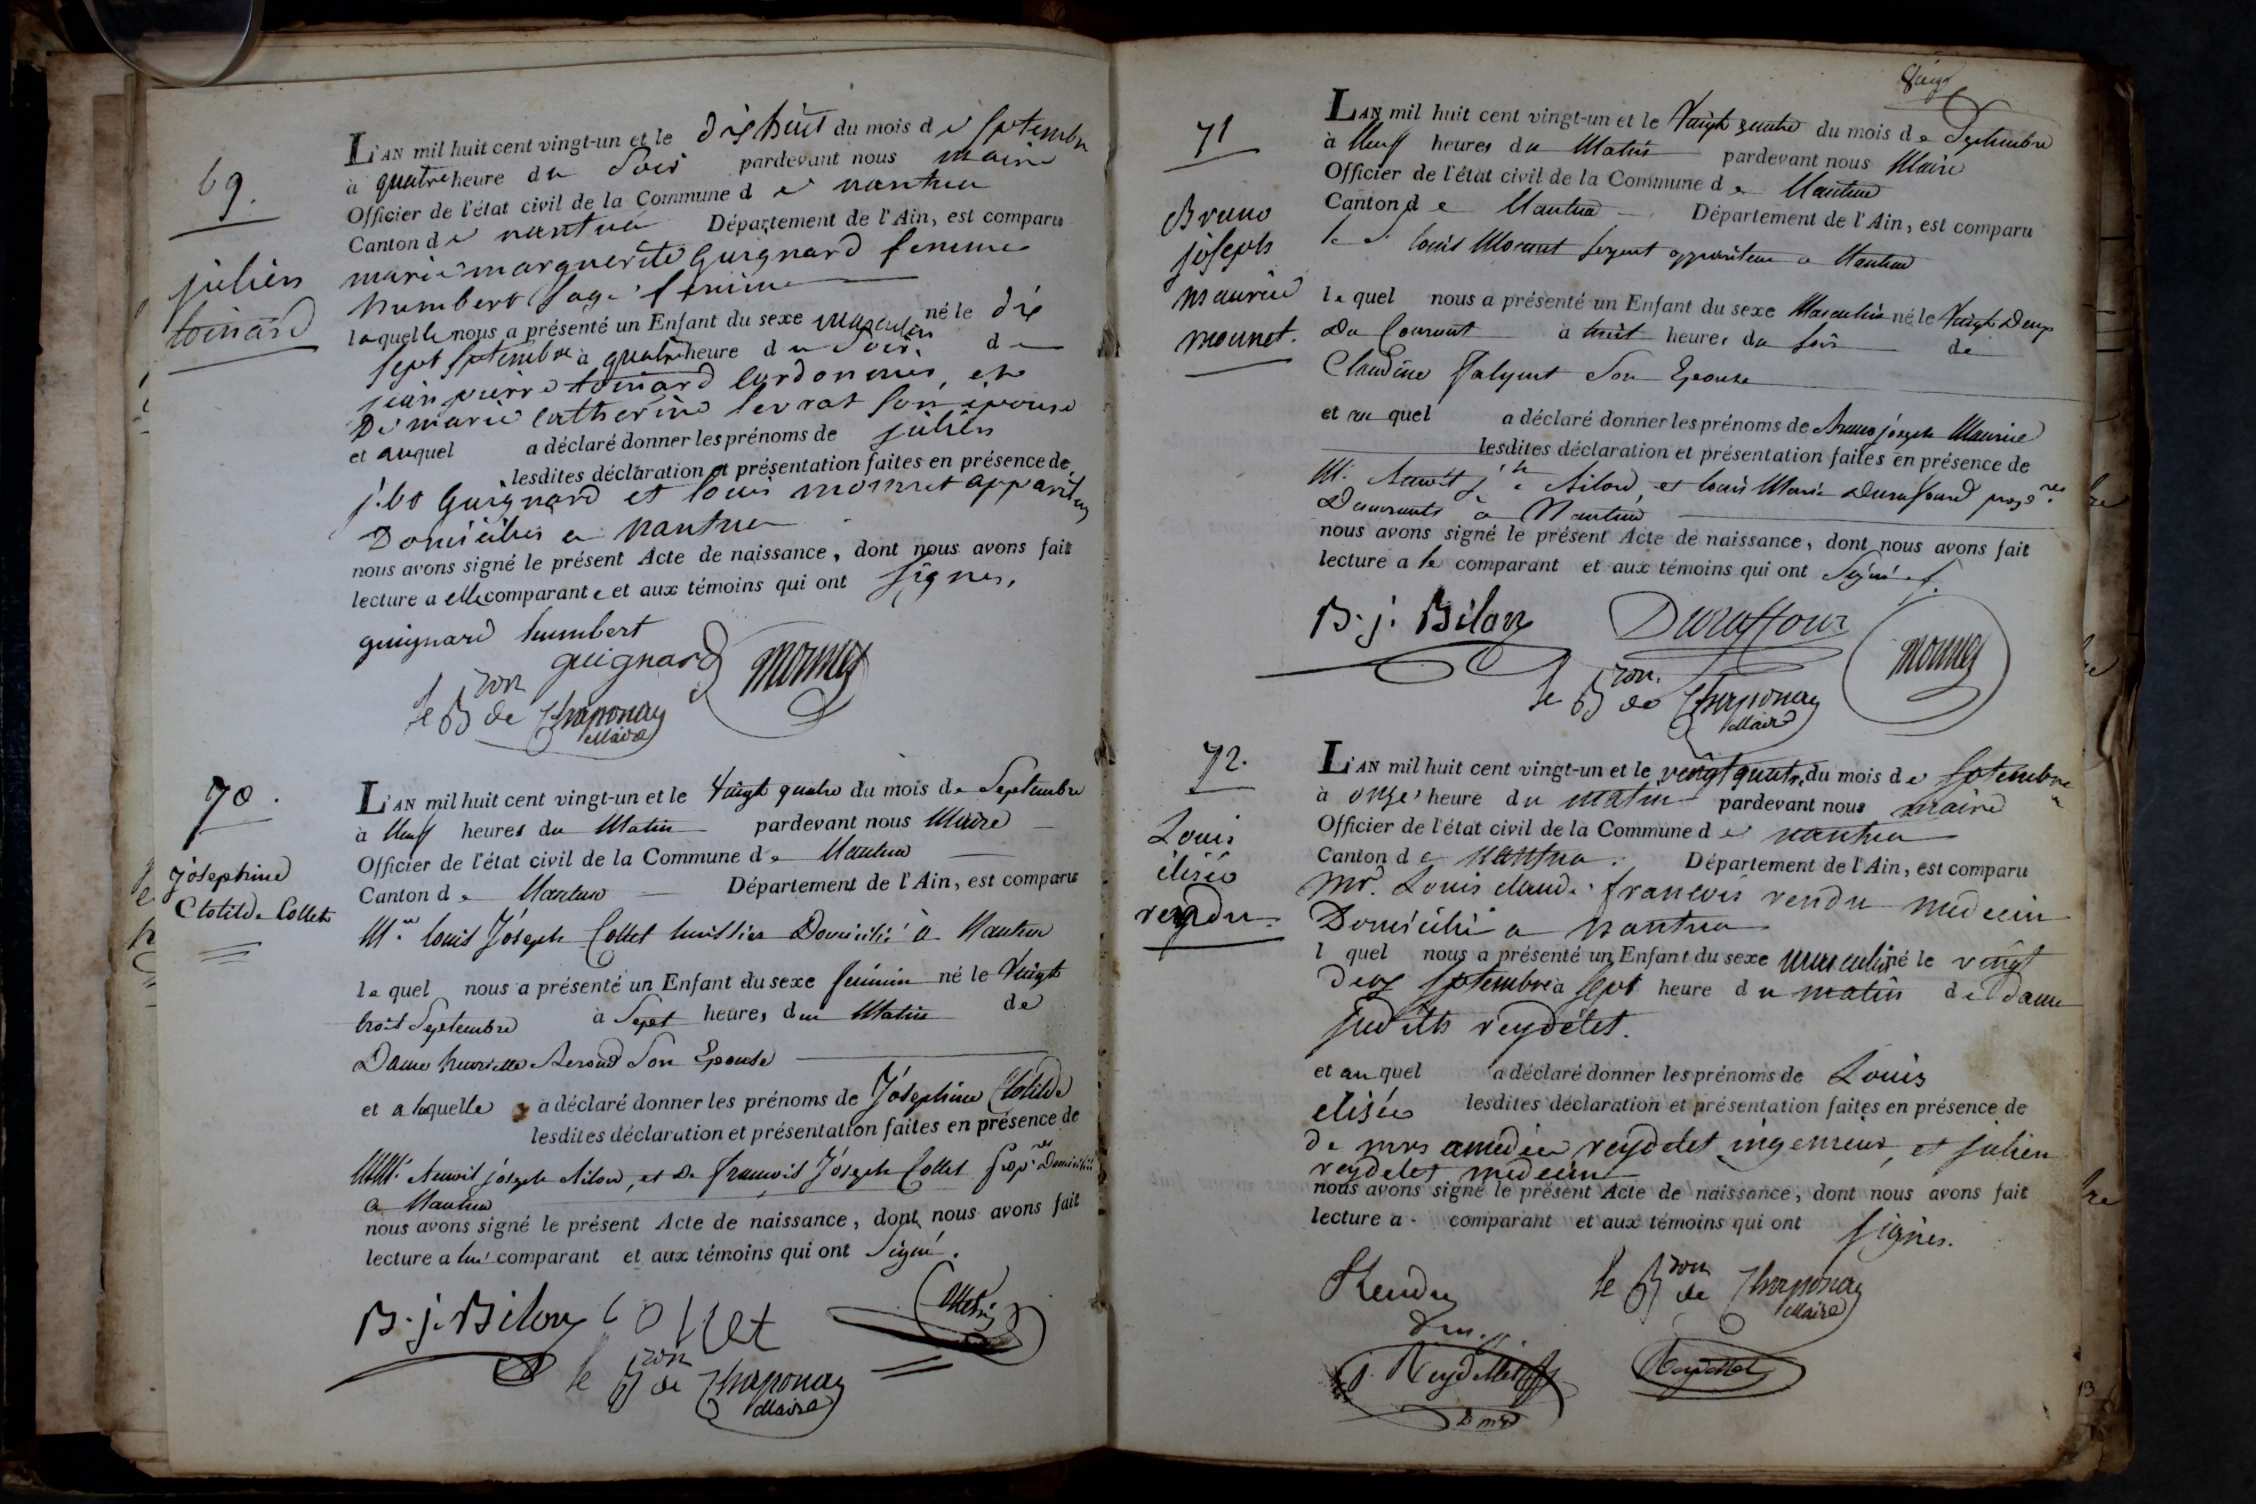 69.
julien
toinard
L'AN mil huit cent vingt-un et le dix huit du mois de septembre
à quatre heure du soir pardevant nous maire
Officier de l'état civil de la Commune de nantua
Canton de nantua Département de l'Ain, est comparu
marie marguerite Guignard femme
humbert sage femme
laquelle nous a présenté un Enfant du sexe masculin né le dix
sept septembre à quatre heure du soir, de
jean pierre toinard cordonnier, et
De marie catherine levrat son épouse
et auquel a déclaré donner les prénoms de julien
lesdites déclaration et présentation faites en présence de
j. bte Guignard et louis mounet appariteur
Domiciliés a nantua
nous avons signé le présent Acte de naissance, dont nous avons fait
lecture a elle comparante et aux témoins qui ont signés,
guignard humbert
guignard mounet
le Bron de Chaponay
Maire
70.
Joséphine
Clotilde Collet
L'AN mil huit cent vingt-un et le Vingt quatre du mois de Septembre
à Neuf heures du Matin pardevant nous Maire
Officier de l'état civil de la Commune de Nantua
Canton de Nantua Département de l'Ain, est comparu
Mr. louis Joseph Collet huissier Domicilié à Nantua
le quel nous a présenté un Enfant du sexe féminin né le Vingt
trois Septembre à Sept heures du Matin de
Dame henriette son Epouse
et a laquelle a déclaré donner les prénoms de Joséphine Clotilde
lesdites déclaration et présentation faites en présence de
MM. joseph Bilon, et De françois Joseph Collet propres Domiciliés
a Nantua
nous avons signé le présent Acte de naissance, dont nous avons fait
lecture a lui comparant et aux témoins qui ont Signé.
B. j. Bilon Collet
le Bron de Chaponay
Maire
71
Bruno
joseph
maurice
mounet.
L'AN mil huit cent vingt-un et le Vingt quatre du mois de Septembre
à Neuf heures du Matin pardevant nous Maire
Officier de l'état civil de la Commune de Nantua
Canton de Nantua Département de l'Ain, est comparu
le Sr louis Mounet sergent appariteur a Nantua
le quel nous a présenté un Enfant du sexe Masculin né le Vingt Deux
Du Courant à huit heures du soir de
Claudine son Epouse
et au quel a déclaré donner les prénoms de Bruno joseph Maurice
lesdites déclaration et présentation faites en présence de
M. Bilon, et louis Marie Duraffourd propres
Demeurants à Nantua
nous avons signé le présent Acte de naissance, dont nous avons fait
lecture a le comparant et aux témoins qui ont Signé
B. j. Bilon Duraffour
mounet
le Bron de Chaponay
Maire
72.
Louis
élisée
rendu.
L'AN mil huit cent vingt-un et le vingt quatre du mois de septembre
à onze heure du matin pardevant nous maire
Officier de l'état civil de la Commune de nantua
Canton de nantua. Département de l'Ain, est comparu
Mr. Louis claude françois rendu médecin
Domicilié a nantua
l quel nous a présenté un Enfant du sexe masculin né le vingt
deux septembre à sept heure du matin de dame
judith reydelet.
et au quel a déclaré donner les prénoms de Louis
elisée lesdites déclaration et présentation faites en présence de
de mrs amédée reydelet ingenieur, et julien
reydelet médecin
nous avons signé le présent Acte de naissance, dont nous avons fait
lecture a comparant et aux témoins qui ont signés.
Rendu le Bron de Chaponay
Maire
dm.
J. Reydellet Reydellet